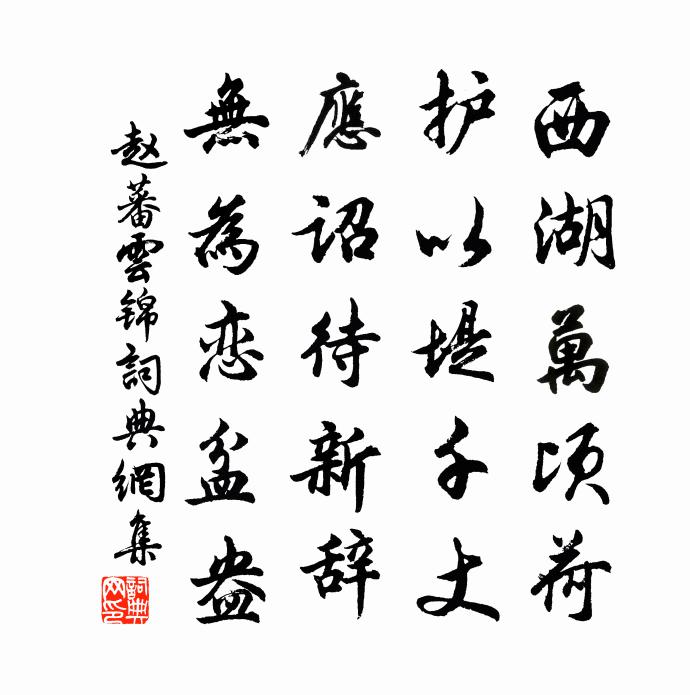 西湖萬頃荷
护以堤千丈
應詔待新辞
無為恋盆盎
赵蕃雲锦詞典網集
詞典網印